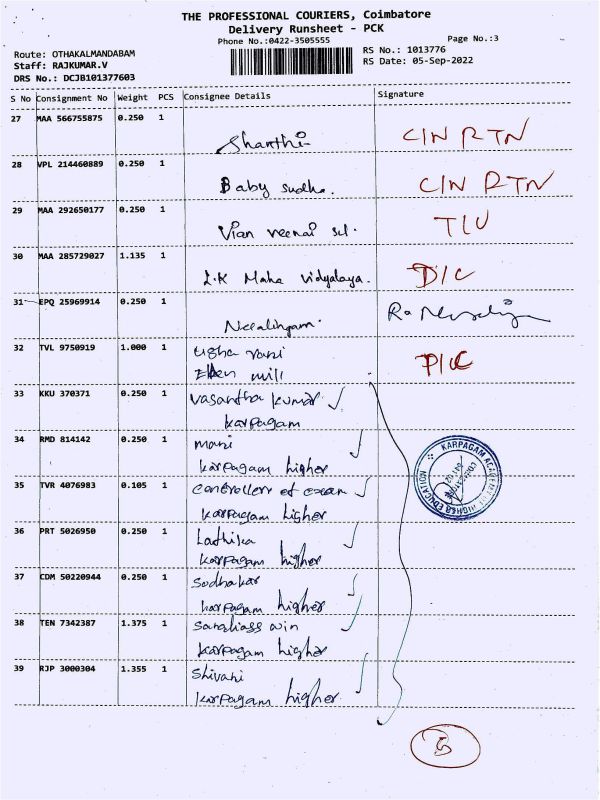 THE PROFESSIONAL COURIERS, Coimbatore
Delivery Runsheet - PCK
Phone No.:0422-3505555
Page No.:3
Route: OTHAKALMANDABAM
RS No.: 1013776
Staff: RAJKUMAR.V
RS Date: 05-Sep-2022
DRS No.: DCJB101377603
S No Consignment No Weight PCS Consignee Details Signature
27 MAA 566755875 0.250 1
Shanthi CIN RTN
28 VPL 214460889 0.250 1
Baby sudha. CIN RTN
29 MAA 292650177 0.250 1
Vian veenai sel. TIU
30 MAA 285729027 1.135 1
L.K Maha vidyalaya. DIC
31 EPQ 25969914 0.250 1
Neelalingam.
32 TVL 9750919 1.000 1 usha rani
mill
33 KKU 370371 0.250 1 vasantha kumar
karpagam
34 RMD 814142 0.250 1 mani
karpagam higher
35 TVR 4076983 0.105 1 controller of exam
karpagam higher
36 PRT 5026950 0.250 1 Lathika
karpagam higher
37 CDM 50220944 0.250 1 Sudhakar
karpagam higher
38 TEN 7342387 1.375 1
karpagam higher
39 RJP 3000304 1.355 1 Shivani
karpagam higher.
KARPAGAM ACADEMY OF HIGHER EDUCATION